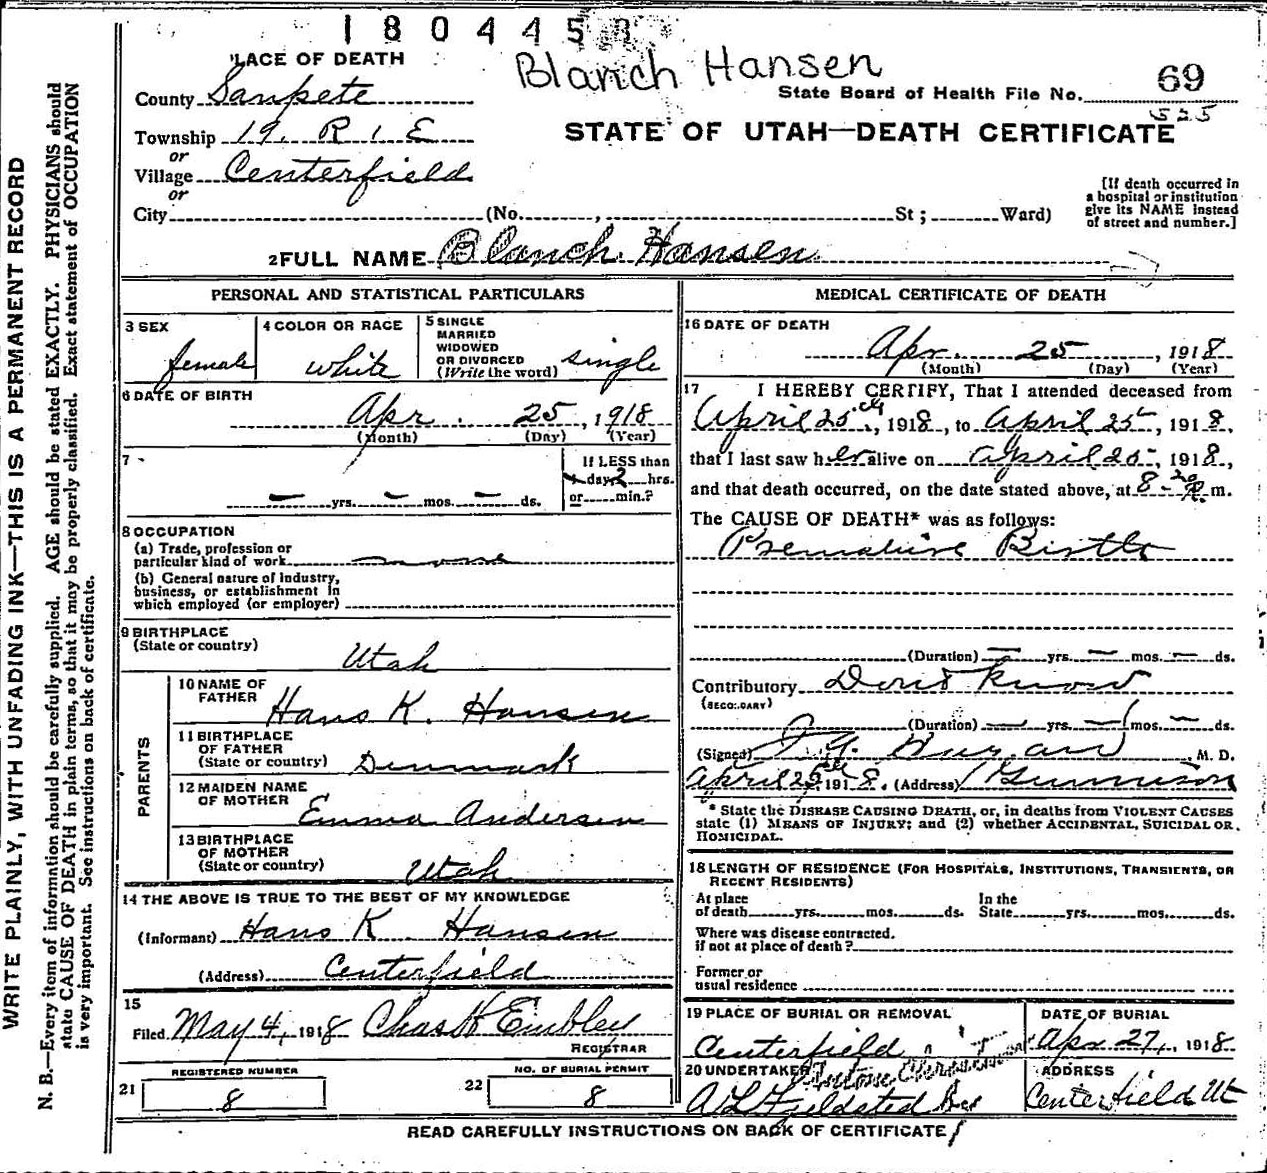 180445
PLACE OF DEATH
Blanch Hansen
County Sanpete
State Board of Health File No. 69
525
Township 19. R 1 E
STATE OF UTAH—DEATH CERTIFICATE
or
Village Centerfield
or
City (No. , St ; Ward)
[If death occurred in
a hospital or institution
give its NAME instead
of street and number.]
2 FULL NAME Blanch Hansen
PERSONAL AND STATISTICAL PARTICULARS
3 SEX
female
4 COLOR OR RACE
white
5 SINGLE
MARRIED
WIDOWED
OR DIVORCED
(Write the word) single
6 DATE OF BIRTH
Apr. 25, 1918
(Month) (Day) (Year)
7
yrs. mos. ds.
If LESS than
1 day 2 hrs.
or min.?
8 OCCUPATION
(a) Trade, profession or
particular kind of work none
(b) General nature of industry,
business, or establishment in
which employed (or employer)
9 BIRTHPLACE
(State or country)
Utah
PARENTS
10 NAME OF
FATHER
Hans K. Hansen
11 BIRTHPLACE
OF FATHER
(State or country) Denmark
12 MAIDEN NAME
OF MOTHER
Emma Andersen
13 BIRTHPLACE
OF MOTHER
(State or country) Utah
14 THE ABOVE IS TRUE TO THE BEST OF MY KNOWLEDGE
(Informant) Hans K Hansen
(Address) Centerfield
15
Filed May 4, 1918 Chas H Embley
REGISTRAR
21 REGISTERED NUMBER
8
22 NO. OF BURIAL PERMIT
8
MEDICAL CERTIFICATE OF DEATH
16 DATE OF DEATH
Apr. 25, 1918
(Month) (Day) (Year)
17 I HEREBY CERTIFY, That I attended deceased from
April 25th, 1918, to April 25, 1918,
that I last saw her alive on April 25, 1918,
and that death occurred, on the date stated above, at 8-20 P. m.
The CAUSE OF DEATH* was as follows:
Premature Birth
(Duration) yrs. mos. ds.
Contributory Dont Know
(SECONDARY)
(Duration) yrs. mos. ds.
(Signed) M. D.
April 25th 1918. (Address) Gunnison
* State the DISEASE CAUSING DEATH, or, in deaths from VIOLENT CAUSES
state (1) MEANS OF INJURY; and (2) whether ACCIDENTAL, SUICIDAL OR
HOMICIDAL.
18 LENGTH OF RESIDENCE (FOR HOSPITALS, INSTITUTIONS, TRANSIENTS, OR
RECENT RESIDENTS)
At place
of death yrs. mos. ds.
In the
State yrs. mos. ds.
Where was disease contracted.
if not at place of death?
Former or
usual residence
19 PLACE OF BURIAL OR REMOVAL
Centerfield
DATE OF BURIAL
Apr 27, 1918
20 UNDERTAKER
A L Fjeldsted
ADDRESS
Centerfield Ut
READ CAREFULLY INSTRUCTIONS ON BACK OF CERTIFICATE
WRITE PLAINLY, WITH UNFADING INK—THIS IS A PERMANENT RECORD
N. B.—Every item of information should be carefully supplied. AGE should be stated EXACTLY. PHYSICIANS should
state CAUSE OF DEATH in plain terms, so that it may be properly classified. Exact statement of OCCUPATION
is very important. See instructions on back of certificate.